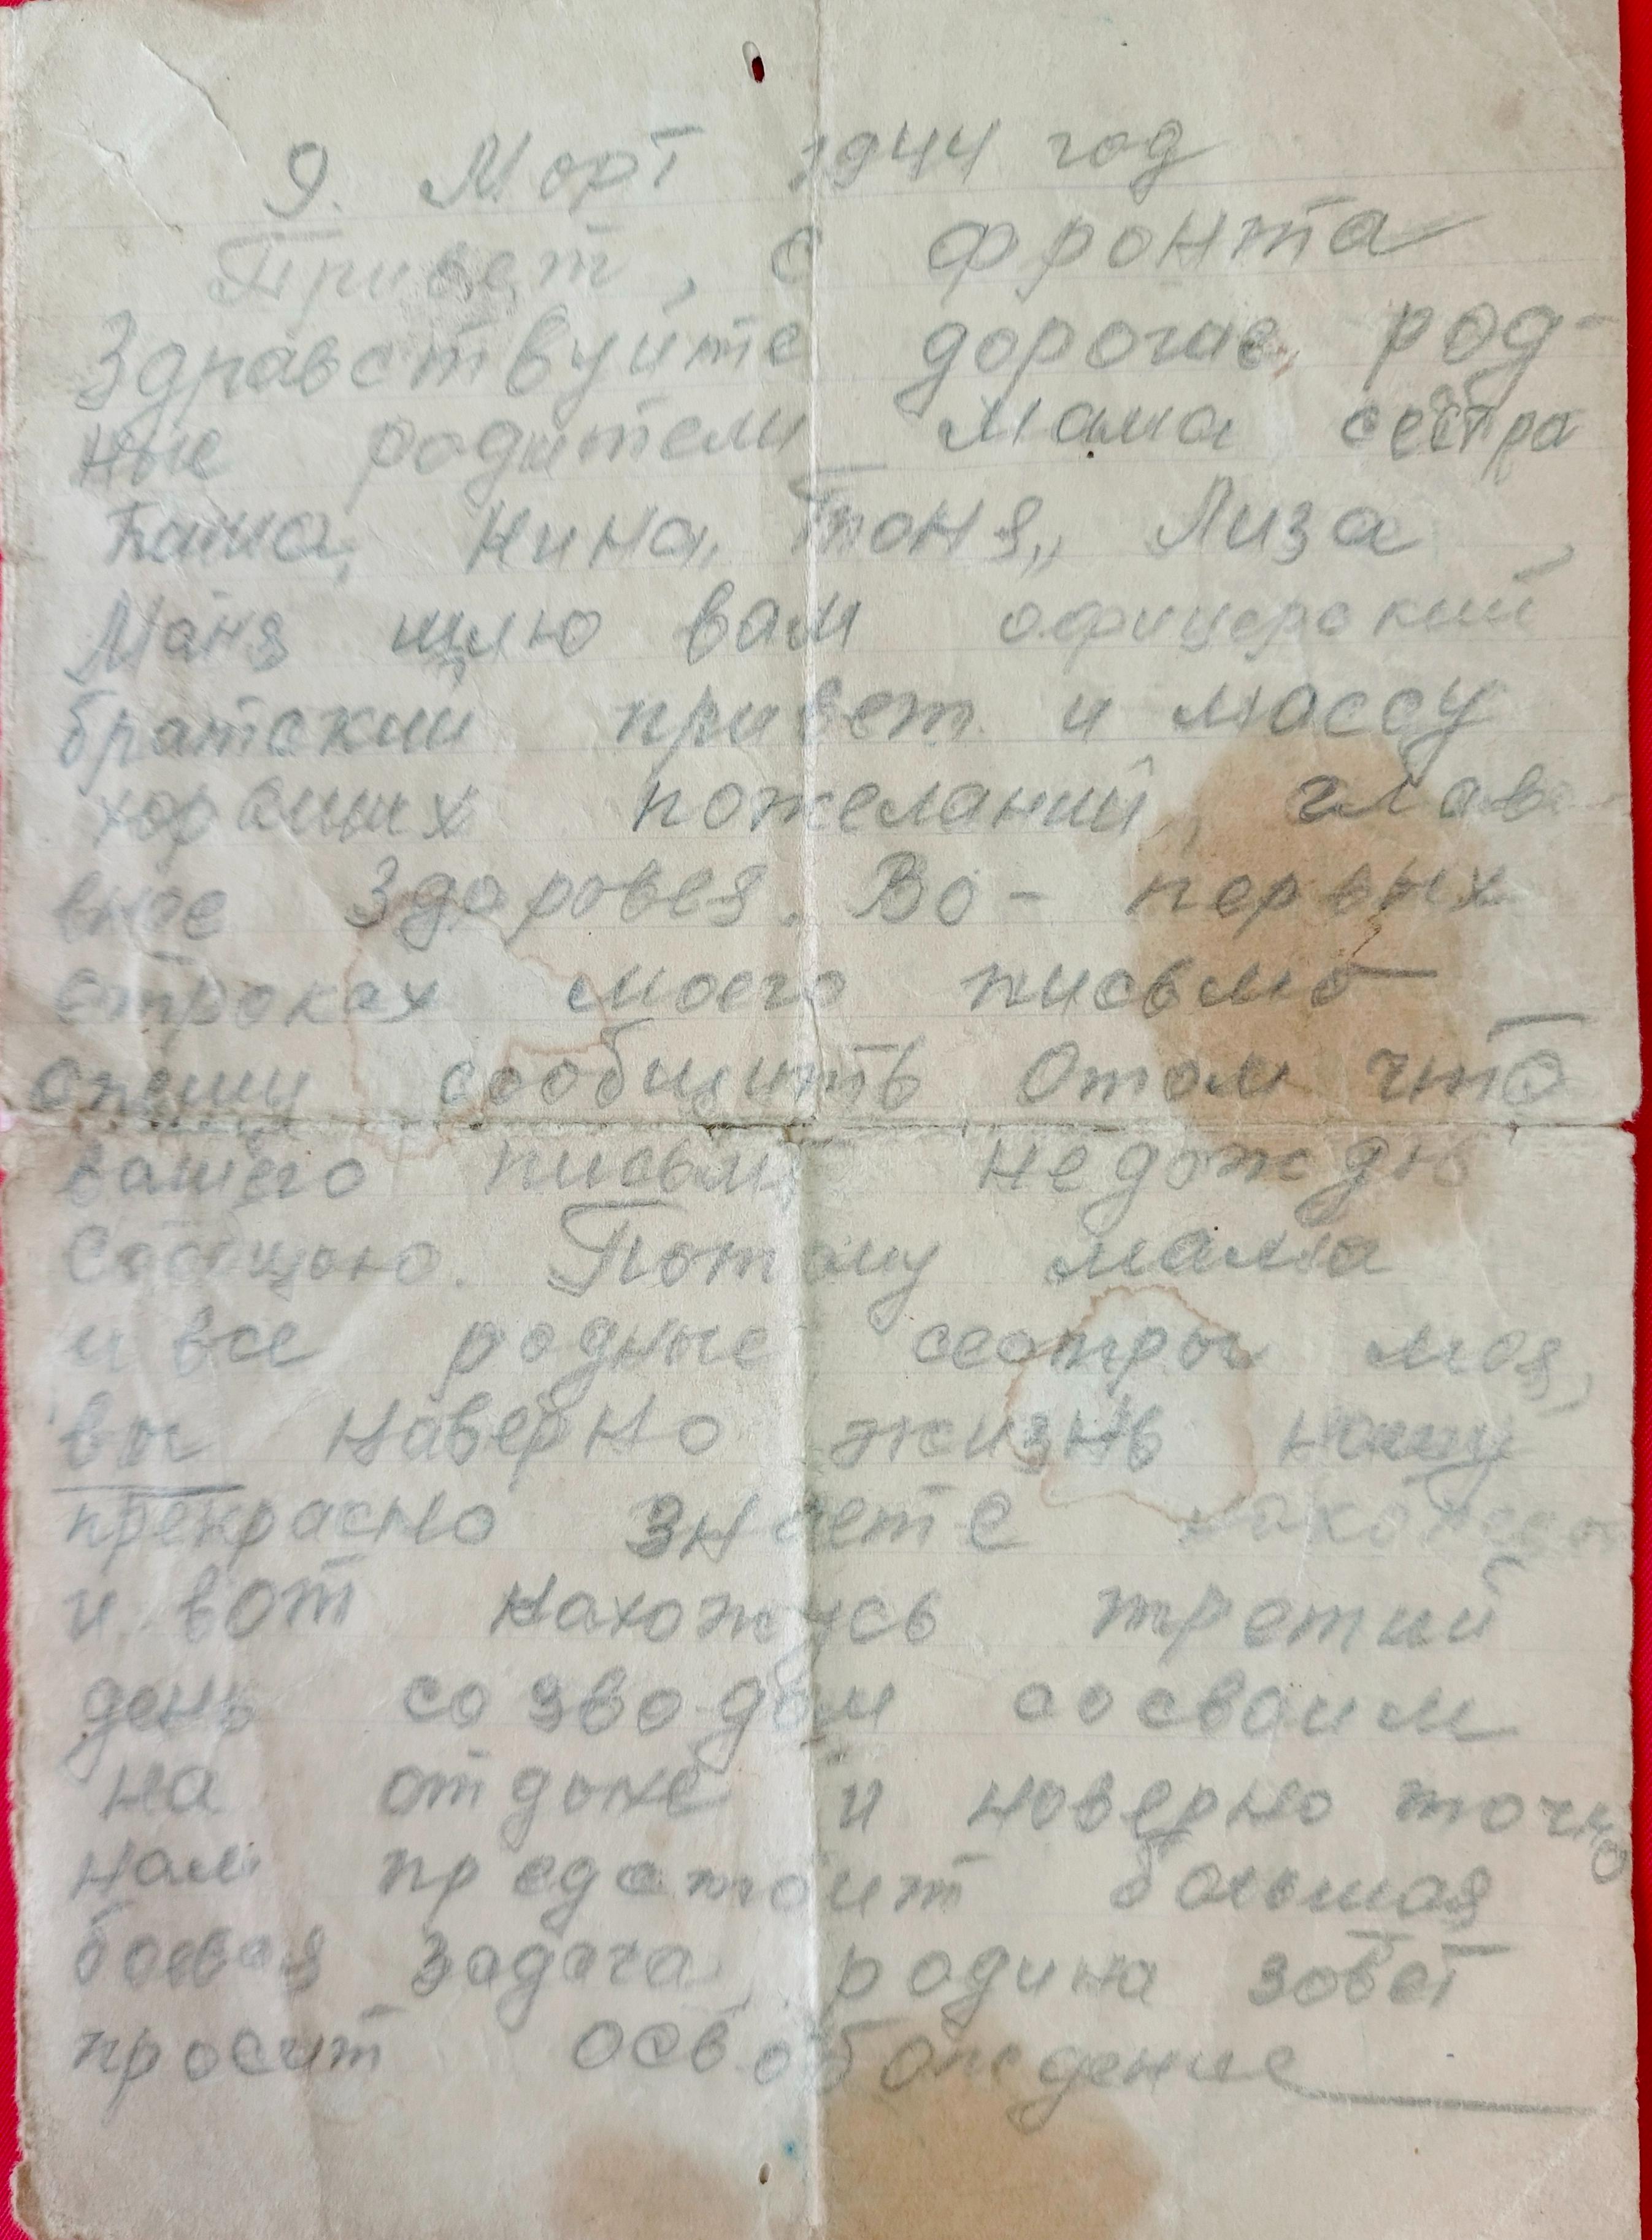 9. Март 1944 год
Привет, с фронта
Здравствуйте дорогие, род-
ные родители Мама сестра
Нина, Тоня,, Лиза,
Маня шлю вам офицерский
братский привет и массу
хороших пожеланий, глав-
ное Здоровея. Во - первых
строках моего письма
спешу сообщить Отом что
вашего письма недождю
Сообщаю. Потому мама
и все родные сестры моя,
вы наверно жизнь нашу
прекрасно знаете
и вот нахожусь третий
день со зводом сосвоим
на отдыхе и наверно точно
нам предстоит большая
боевая задача, родина зовет
просит освобождение